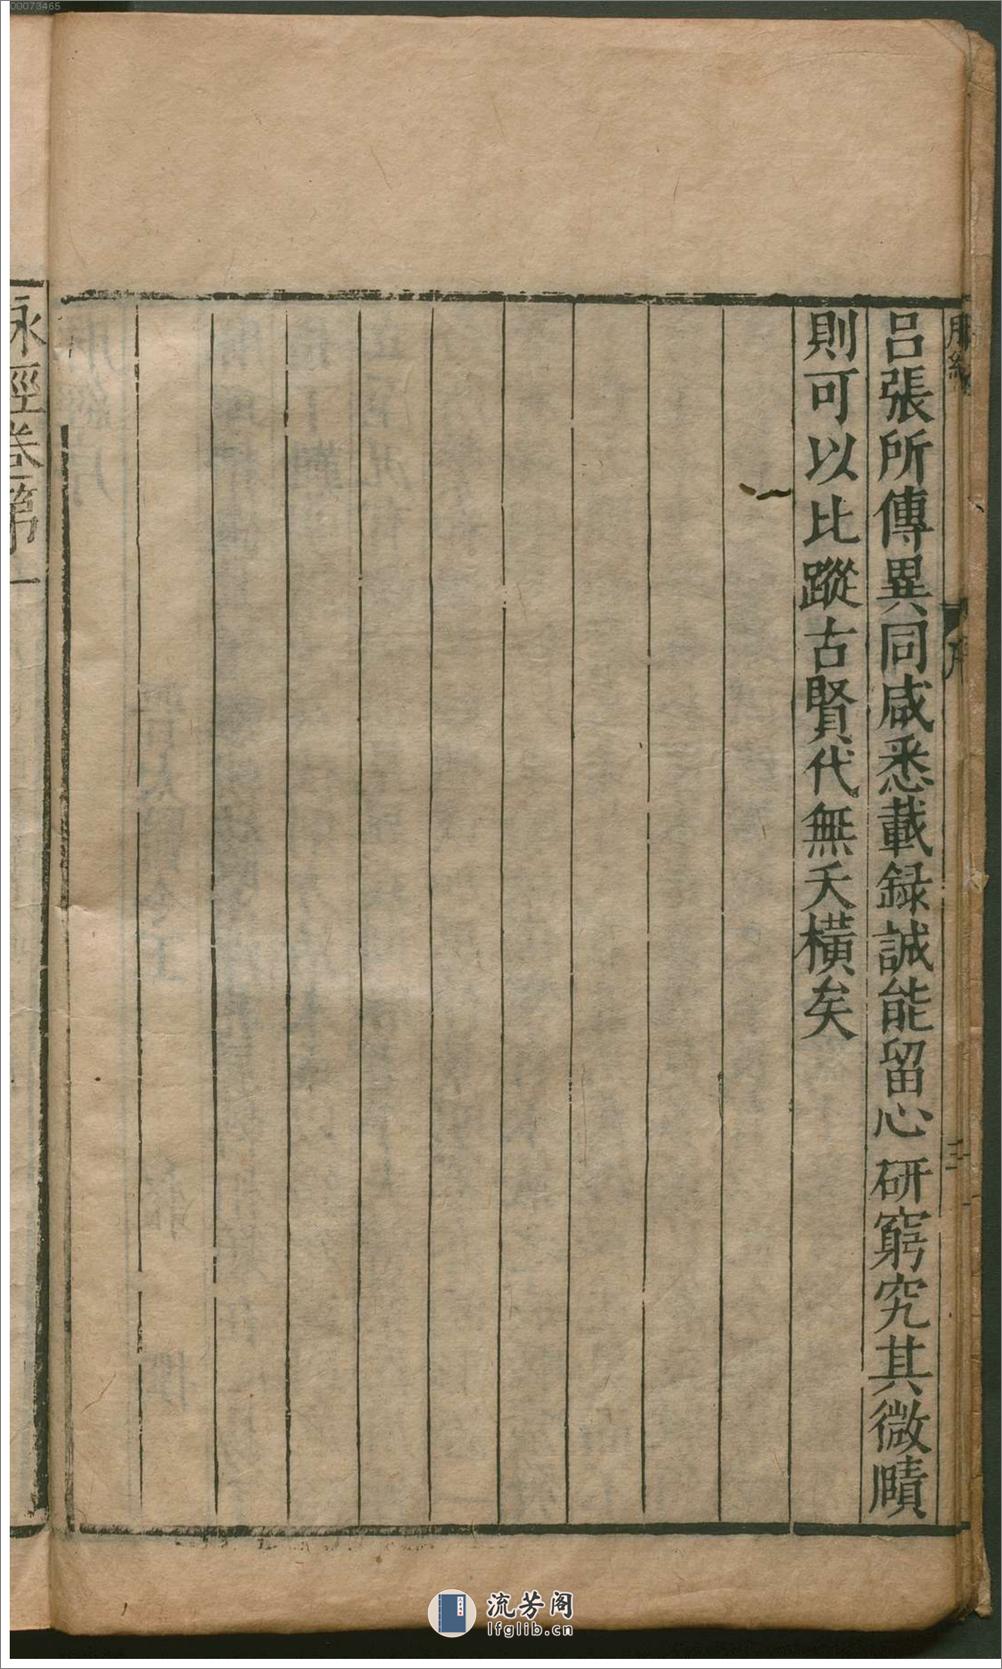 吕張所傳異同咸悉載録誠能留心研窮究其微賾
則可以比蹤古賢代無夭橫矣
脉經卷第一
00073465
流芳阁
lfglib.cn